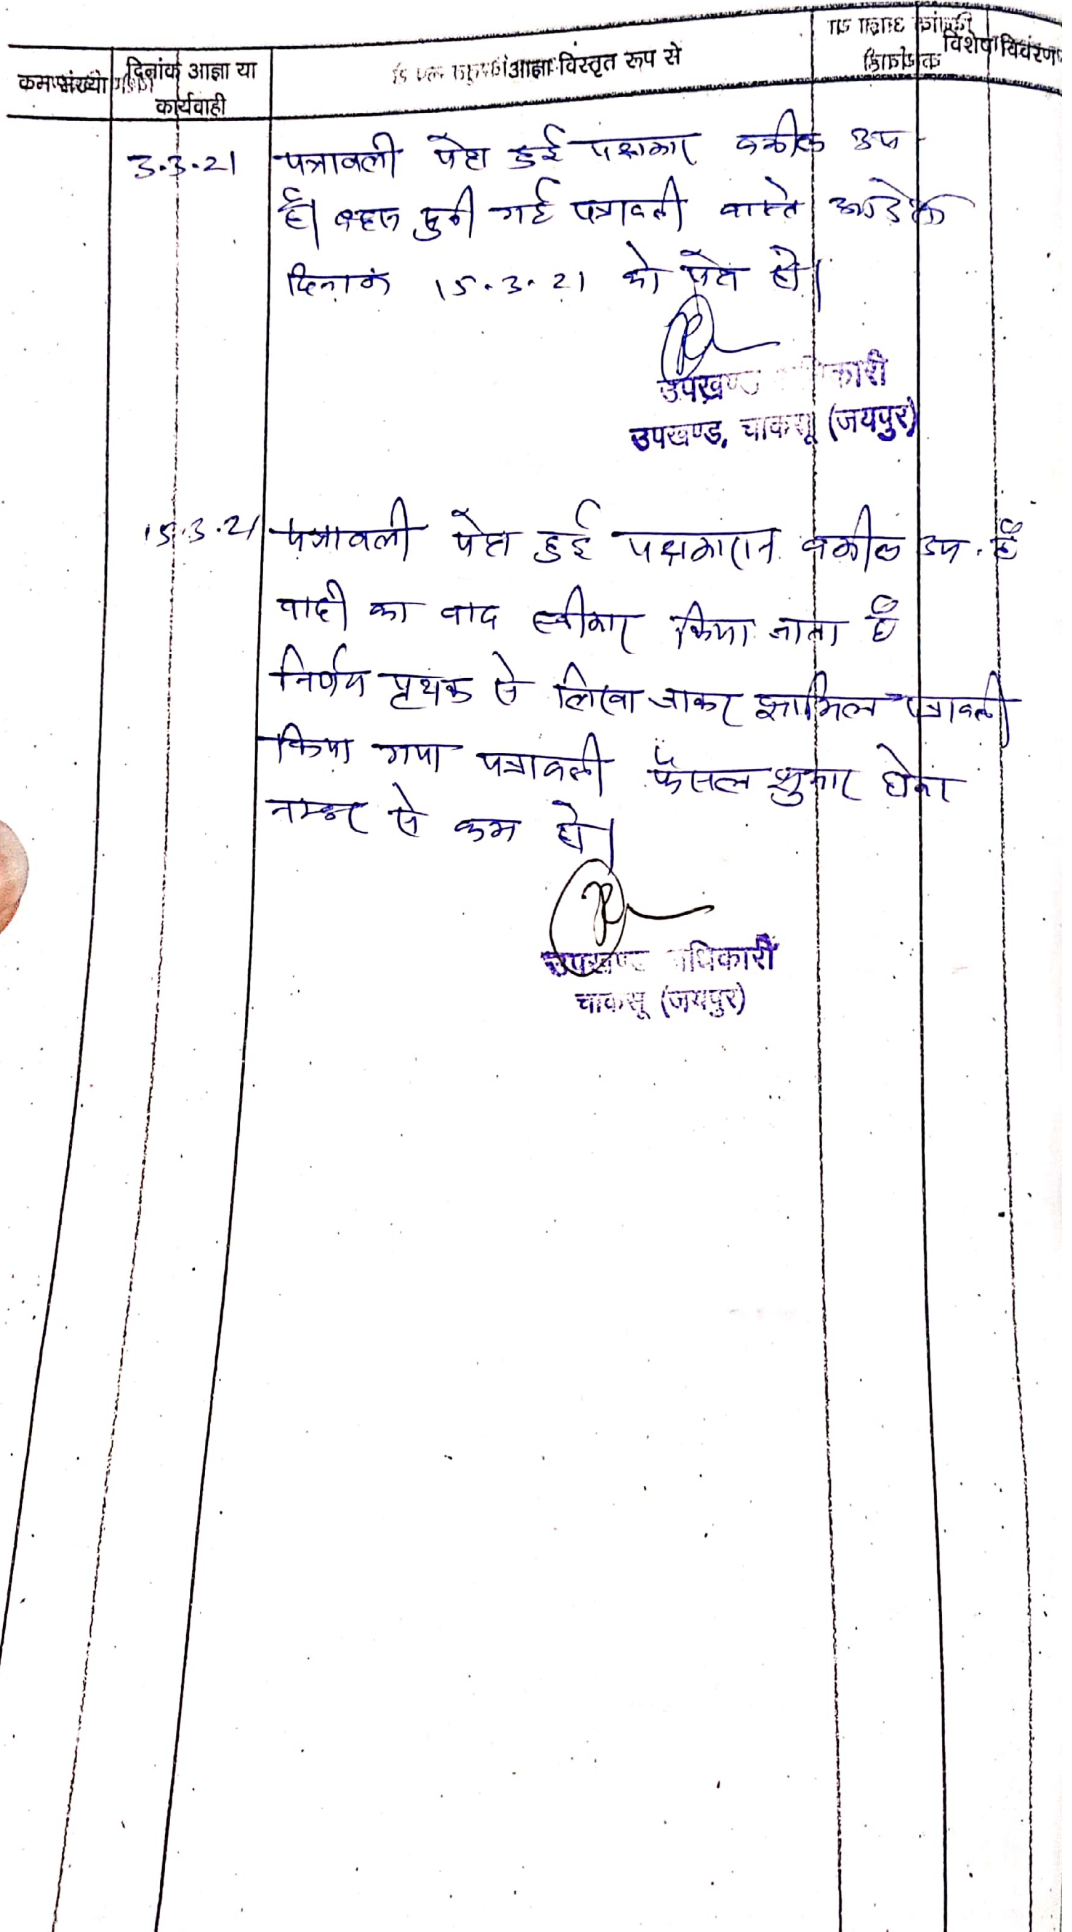 कम संख्या
दिनांक आज्ञा या
कार्यवाही
आज्ञा विस्तृत रूप से
विशेष विवरण
3.3.21
पत्रावली पेश हुई पक्षकार वकील उप
है। बहस सुनी गई पत्रावली वास्ते आदेश
दिनांक 15.3.21 को पेश हो।
उपखण्ड अधिकारी
उपखण्ड, चाकसू (जयपुर)
15.3.21
पत्रावली पेश हुई पक्षकारान वकील उप. है
वादी का वाद स्वीकार किया जाता है
निर्णय पृथक से लिखा जाकर शामिल पत्रावली
किया गया पत्रावली फैसल शुमार होकर
नम्बर से कम हो।
उपखण्ड अधिकारी
चाकसू (जयपुर)